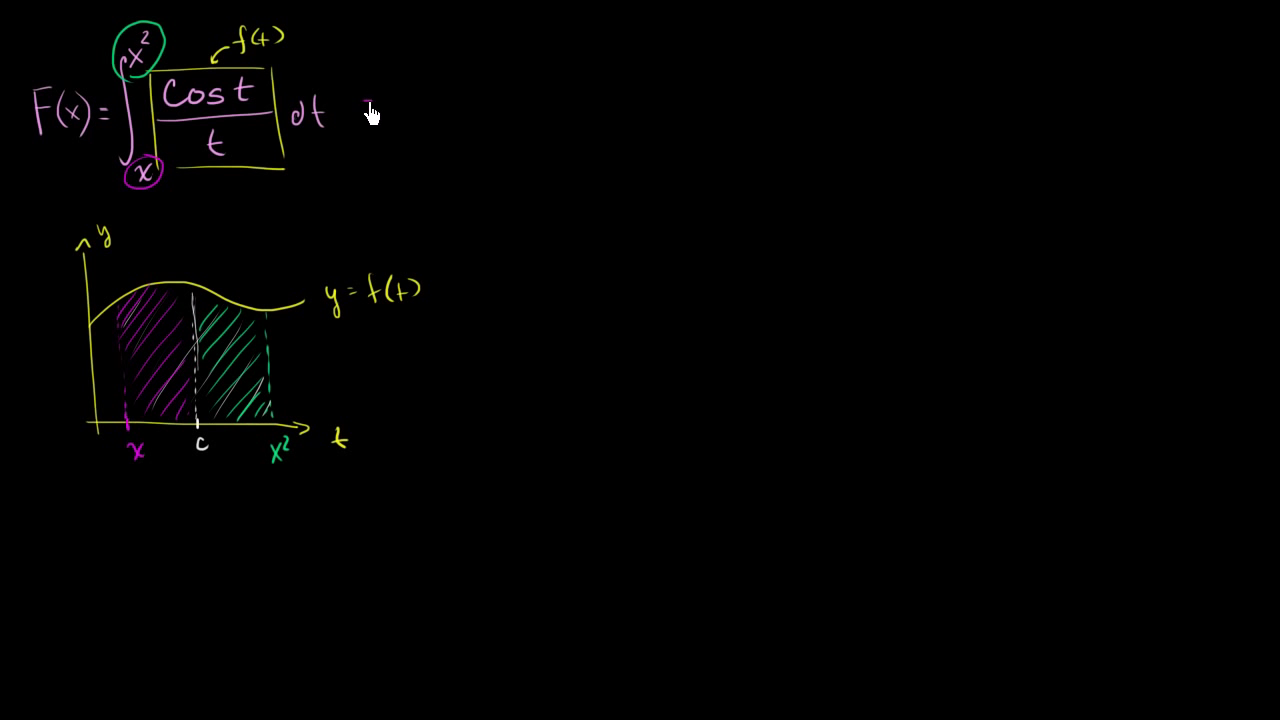 F(x) = ∫ₓ^x² cos t / t dt
f(t)
y
y = f(t)
x c x² t